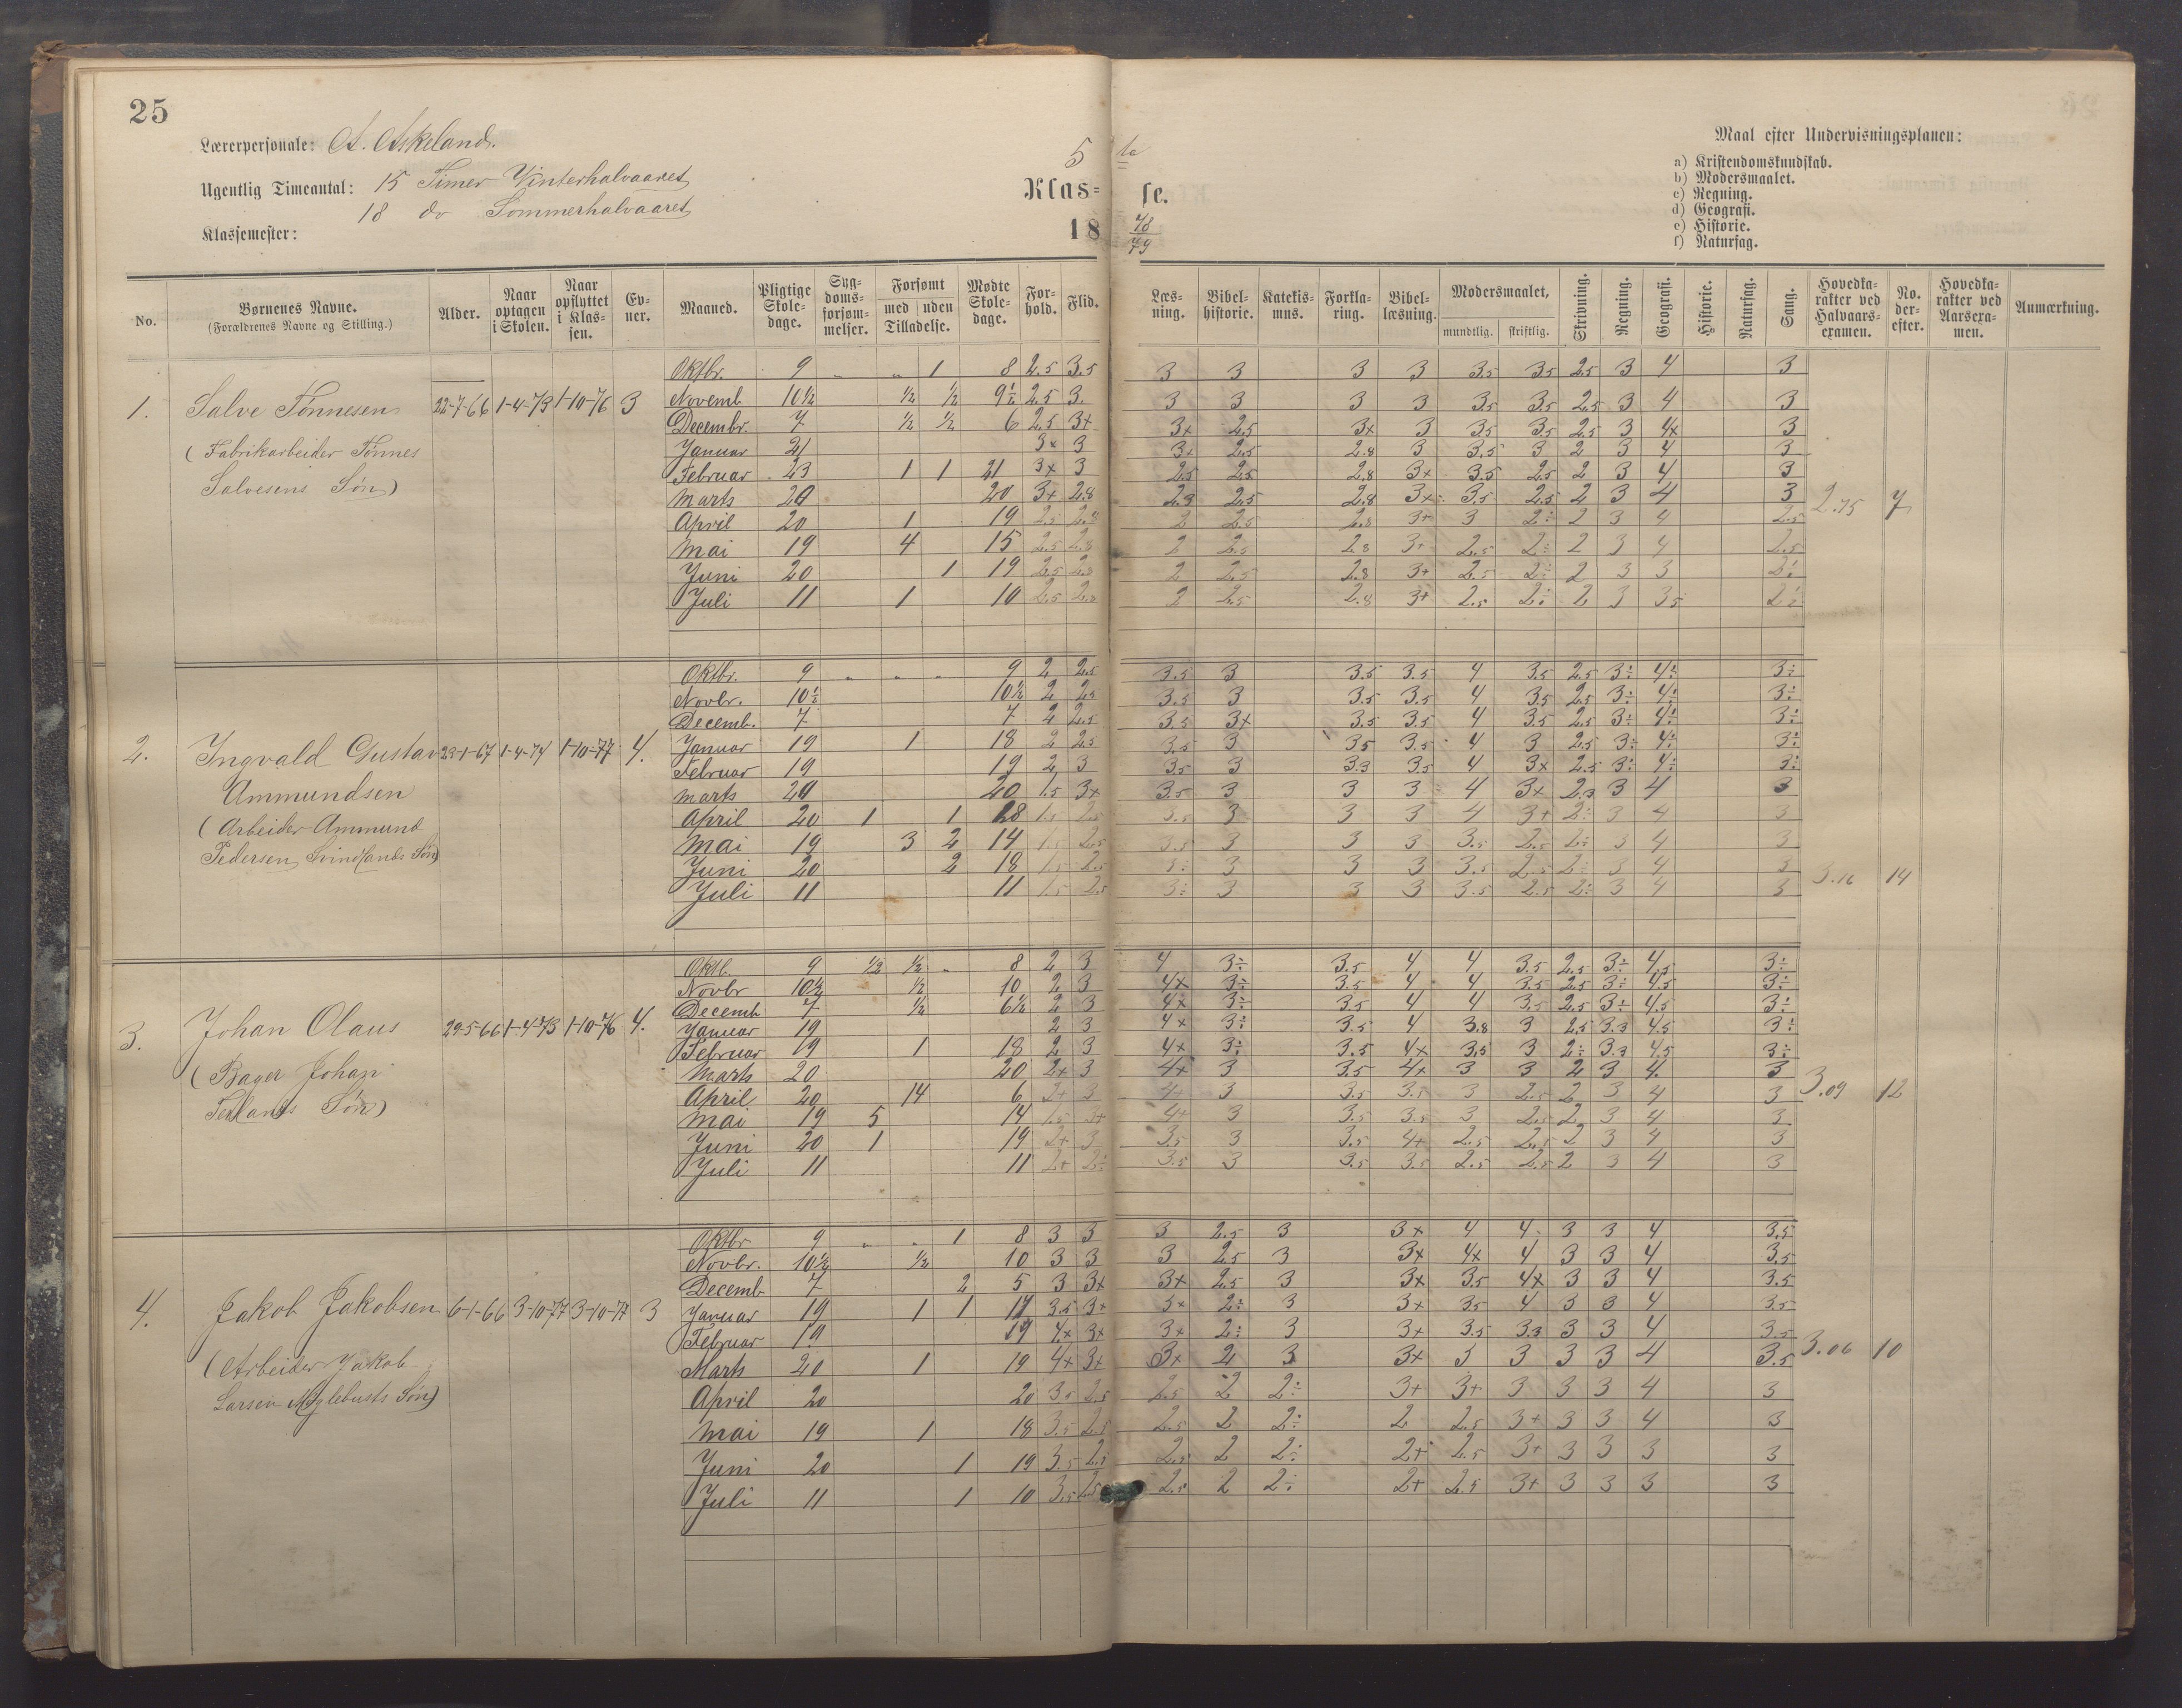 25
Lærerpersonale: A. Askeland.
Ugentlig Timeantal: 15 Timer Vinterhalvaaret
18 do Sommerhalvaaret
Klassemester:
5 te
Klas- se.
18 78/79
Maal efter Undervisningsplanen:
a) Kristendomskundskab.
b) Modersmaalet.
c) Regning.
d) Geografi.
e) Historie.
f) Naturfag.
No. Børnenes Navne. (Forældrenes Navne og Stilling.) Alder. Naar optagen i Skolen. Naar opflyttet i Klassen. Evner. Maaned. Pligtige Skoledage. Sygdomsforsømmelser. Forsømt med uden Tilladelse. Mødte Skoledage. Forhold. Flid. Læsning. Bibelhistorie. Katekismus. Forklaring. Bibellæsning. Modersmaalet, mundtlig. skriftlig. Skrivning. Regning. Geografi. Historie. Naturfag. Sang. Hovedkarakter ved Halvaarsexamen. No. derefter. Hovedkarakter ved Aarsexamen. Anmærkning.
1. Salve Tønnesen 22-7-66 1-4-73 1-10-76 3
(Fabrikarbeider Tønnes
Salvesens Søn)
Oktbr. 9 „ „ 1 8 2.5 3.5 3 3 3 3 3.5 3.5 2.5 3 4 3
Novemb 10½ ½ ½ 9½ 2.5 3. 3 3 3 3 3.5 3.5 2.5 3 4 3
Decembr. 7 ½ ½ 6 2.5 3+ 3x 2.5 3x 3 3.5 3.5 2.5 3 4x 3
Januar 21 3x 3 3+ 2.5 2.8 3 3.5 3 2 3 4 3
Februar 23 1 1 21 3x 3 2.5 2.5 2.8 3+ 3.5 2.5 2 3 4 3
Marts 20 20 3+ 2.8 2.3 2.5 2.8 3x 3.5 2.5 2 3 4 3
April 20 1 19 2.5 2.8 2 2.5 2.8 3+ 3 2÷ 2 3 4 2.5
Mai 19 4 15 2.5 2.8 2 2.5 2.8 3+ 2.5 2÷ 2 3 4 2.5
Juni 20 1 19 2.5 2.8 2 2.5 2.8 3+ 2.5 2÷ 2 3 3 2÷
Juli 11 1 10 2.5 2.8 2 2.5 2.8 3+ 2.5 2÷ 2 3 3.5 2÷
2.75 7
2. Ingvald Gustav 23-1-67 1-4-74 1-10-77 4.
Ammundsen
(Arbeider Ammund
Pedersen Svindlands Søn)
Oktbr. 9 „ „ „ 9 2 2.5 3.5 3 3.5 3.5 4 3.5 2.5 3÷ 4÷ 3÷
Novbr. 10½ 10½ 2 2.5 3.5 3 3.5 3.5 4 3.5 2.5 3÷ 4÷ 3÷
Decemb. 7 7 2 2.5 3.5 3x 3.5 3.5 4 3.5 2.5 3÷ 4÷ 3÷
Januar 19 1 18 2 2.5 3.5 3 3.5 3.5 4 3 2.5 3÷ 4÷ 3÷
Februar 19 19 2 3 3.5 3 3.3 3.5 4 3x 2.5 3÷ 4÷ 3÷
Marts 20 20 1.5 3x 3.5 3 3 3 4 3x 2.3 3 4 3
April 20 1 1 18 1.5 2.5 3.5 3 3 3 4 3+ 2÷ 3 4 3
Mai 19 3 2 14 1.5 2.5 3.5 3 3 3 3.5 2.5 2÷ 3 4 3
Juni 20 2 18 1.5 2.5 3÷ 3 3 3 3.5 2.5 2÷ 3 4 3
Juli 11 11 1.5 2.5 3÷ 3 3 3 3.5 2.5 2÷ 3 4 3
3.16 14
3. Johan Olaus 29-5-66 1-4-73 1-10-76 4.
(Bager Johan
Søn)
Oktb. 9 ½ ½ „ 8 2 3 4 3÷ 3.5 4 4 3.5 2.5 3÷ 4.5 3÷
Novbr 10½ ½ 10 2 3 4x 3÷ 3.5 4 4 3.5 2.5 3÷ 4.5 3÷
Decemb 7 ½ 6½ 2 3 4x 3÷ 3.5 4 4 3.5 2.5 3÷ 4.5 3÷
Januar 19 2 3 4x 3÷ 3.5 4 3.8 3 2.5 3.3 4.5 3÷
Februar 19 1 18 2 3 4x 3÷ 3.5 4x 3.5 3 2÷ 3.3 4.5 3÷
Marts 20 20 2x 3 4x 3 3.5 4x 3 3 2 3 4. 3
April 20 14 6 2+ 3 4+ 3 3.5 3.5 3 2.5 2 3 4 3
Mai 19 5 14 1.5 3+ 4+ 3 3.5 3.5 3 2.5 2 3 4 3
Juni 20 1 19 2+ 3 3.5 3 3.5 4+ 2.5 2.5 2 3 4 3
Juli 11 11 2+ 2÷ 3.5 3 3.5 3.5 2.5 2.5 2 3 4 3
3.09 12
4. Jakob Jakobsen 6-1-66 3-10-77 3-10-77 3
(Arbeider Jakob
Larsen Myglebusts Søn)
Oktbr 9 „ „ 1 8 3 3 3 2.5 3 3x 4 4 3 3 4 3.5
Novbr. 10½ ½ 10 3 3 3 2.5 3 3x 4x 4 3 3 4 3.5
Decemb 7 2 5 3 3x 3x 2.5 3 3x 3.5 4x 3 3 4 3.5
Januar 19 1 1 17 3.5 3x 3x 2÷ 3 3x 3.5 4 3 3 4 3.5
Februar 19 19 4x 3x 3x 2÷ 3 3x 3.5 3.3 3 3 4 3.5
Marts 20 1 19 4x 3x 3x 2 3 3x 3 3 3 3 4 3.5
April 20 20 3.5 2.5 2.5 2 2÷ 3+ 3+ 3 3 3 4 3
Mai 19 1 18 3.5 2.5 2.5 2 2÷ 2 2.5 3+ 3 3 4 3
Juni 20 1 19 3.5 2.5 2.5 2 2÷ 2+ 2.5 3+ 3 3 3 3
Juli 11 1 10 3.5 2.5 2.5 2 2÷ 2+ 2.5 3+ 3 3 3 3
3.06 10